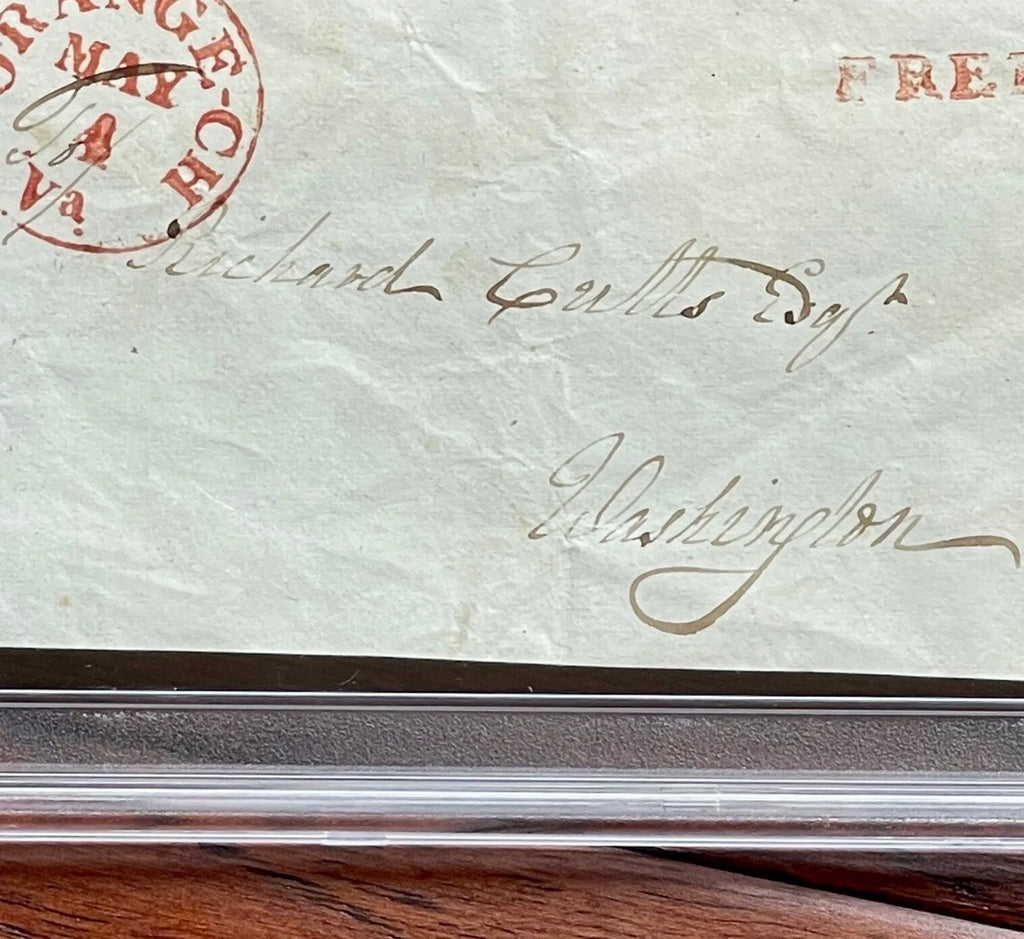 ORANGE-CH
MAY
4
Va
FREE
Richard Cutts Esqr.
Washington